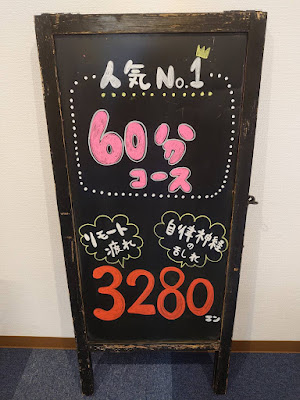 人気No.1
60分
コース
リモート
疲れ
自律神経
の
みしれ
3280
エン